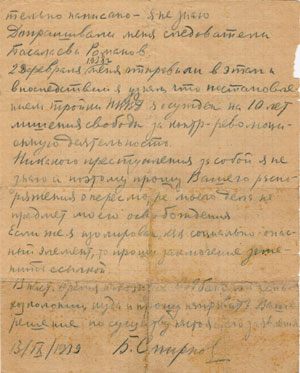 тельно написано – я не знаю
Допрашивали меня следователи
Басалаев Романов
28 февраля меня отправили в этап и
1938 г
впоследствии я узнал что постановле
нием тройки НКВД я осужден на 10 лет
лишения свободы за контр-революци
онную деятельность.
Никакого преступления за собой я не
знаю а поэтому прошу Вашего распо
ряжения о пересмотре моего дела на
предмет моего освобождения
Если же я изолирован как социально-опас
ный элемент, то прошу заключение заме
нить ссылкой
В наст. время я
куда и прошу направить Ваше
решение по существу моего заявления
13/IX/1939 Б. Смирнов